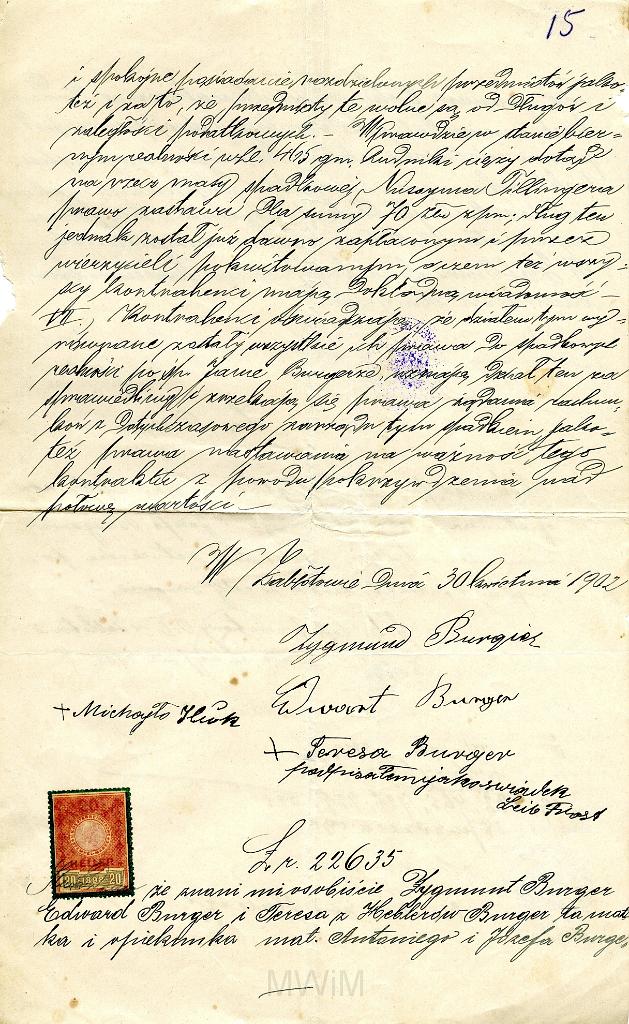 15
i spokojne posiadanie rozdzielonych przedmiotów jako
też i za to, że przedmioty te wolne są od długów i
zaległości podatkowych. – Wprawdzie w stanie bier-
nym realności whl. 415 gm. Rudniki cięży dotąd
na rzecz masy spadkowej Tillingera
prawo zastawu dla sumy 70 złr z pn. dług ten
jednak został już dawno zapłaconym i przez
wierzycieli pokwitowanym, o czem też wszy-
scy kontrahenci mają dokładną wiadomość –
VII. Kontrahenci oświadczają, że działem tym wy-
równane zostały wszystkie ich prawa do spadkowych
realności po śp. Janie Burgerze uznają dział ten za
sprawiedliwy i zrzekają się prawa żądania rachun-
ków z dotychczasowego zarządu tym spadkiem jako-
też prawa nastawania na ważność tego
kontraktu z powodu pokrzywdzenia nad
połowę wartości –
W Zabłotowie dnia 30 kwietnia 1902
Zygmund Burgier
Edwart Burger
+ Michajło Iluk
+ Teresa Burger
podpisałem ją jako swiadek
Leib Frost
L. r. 22635
HELLER
20 1898 20
że znani mi osobiście Zygmunt Burger
Edward Burger i Teresa z Heblerów Burger ta mat
ka i opiekunka mał. Antoniego i Józefa Burger
MWiM